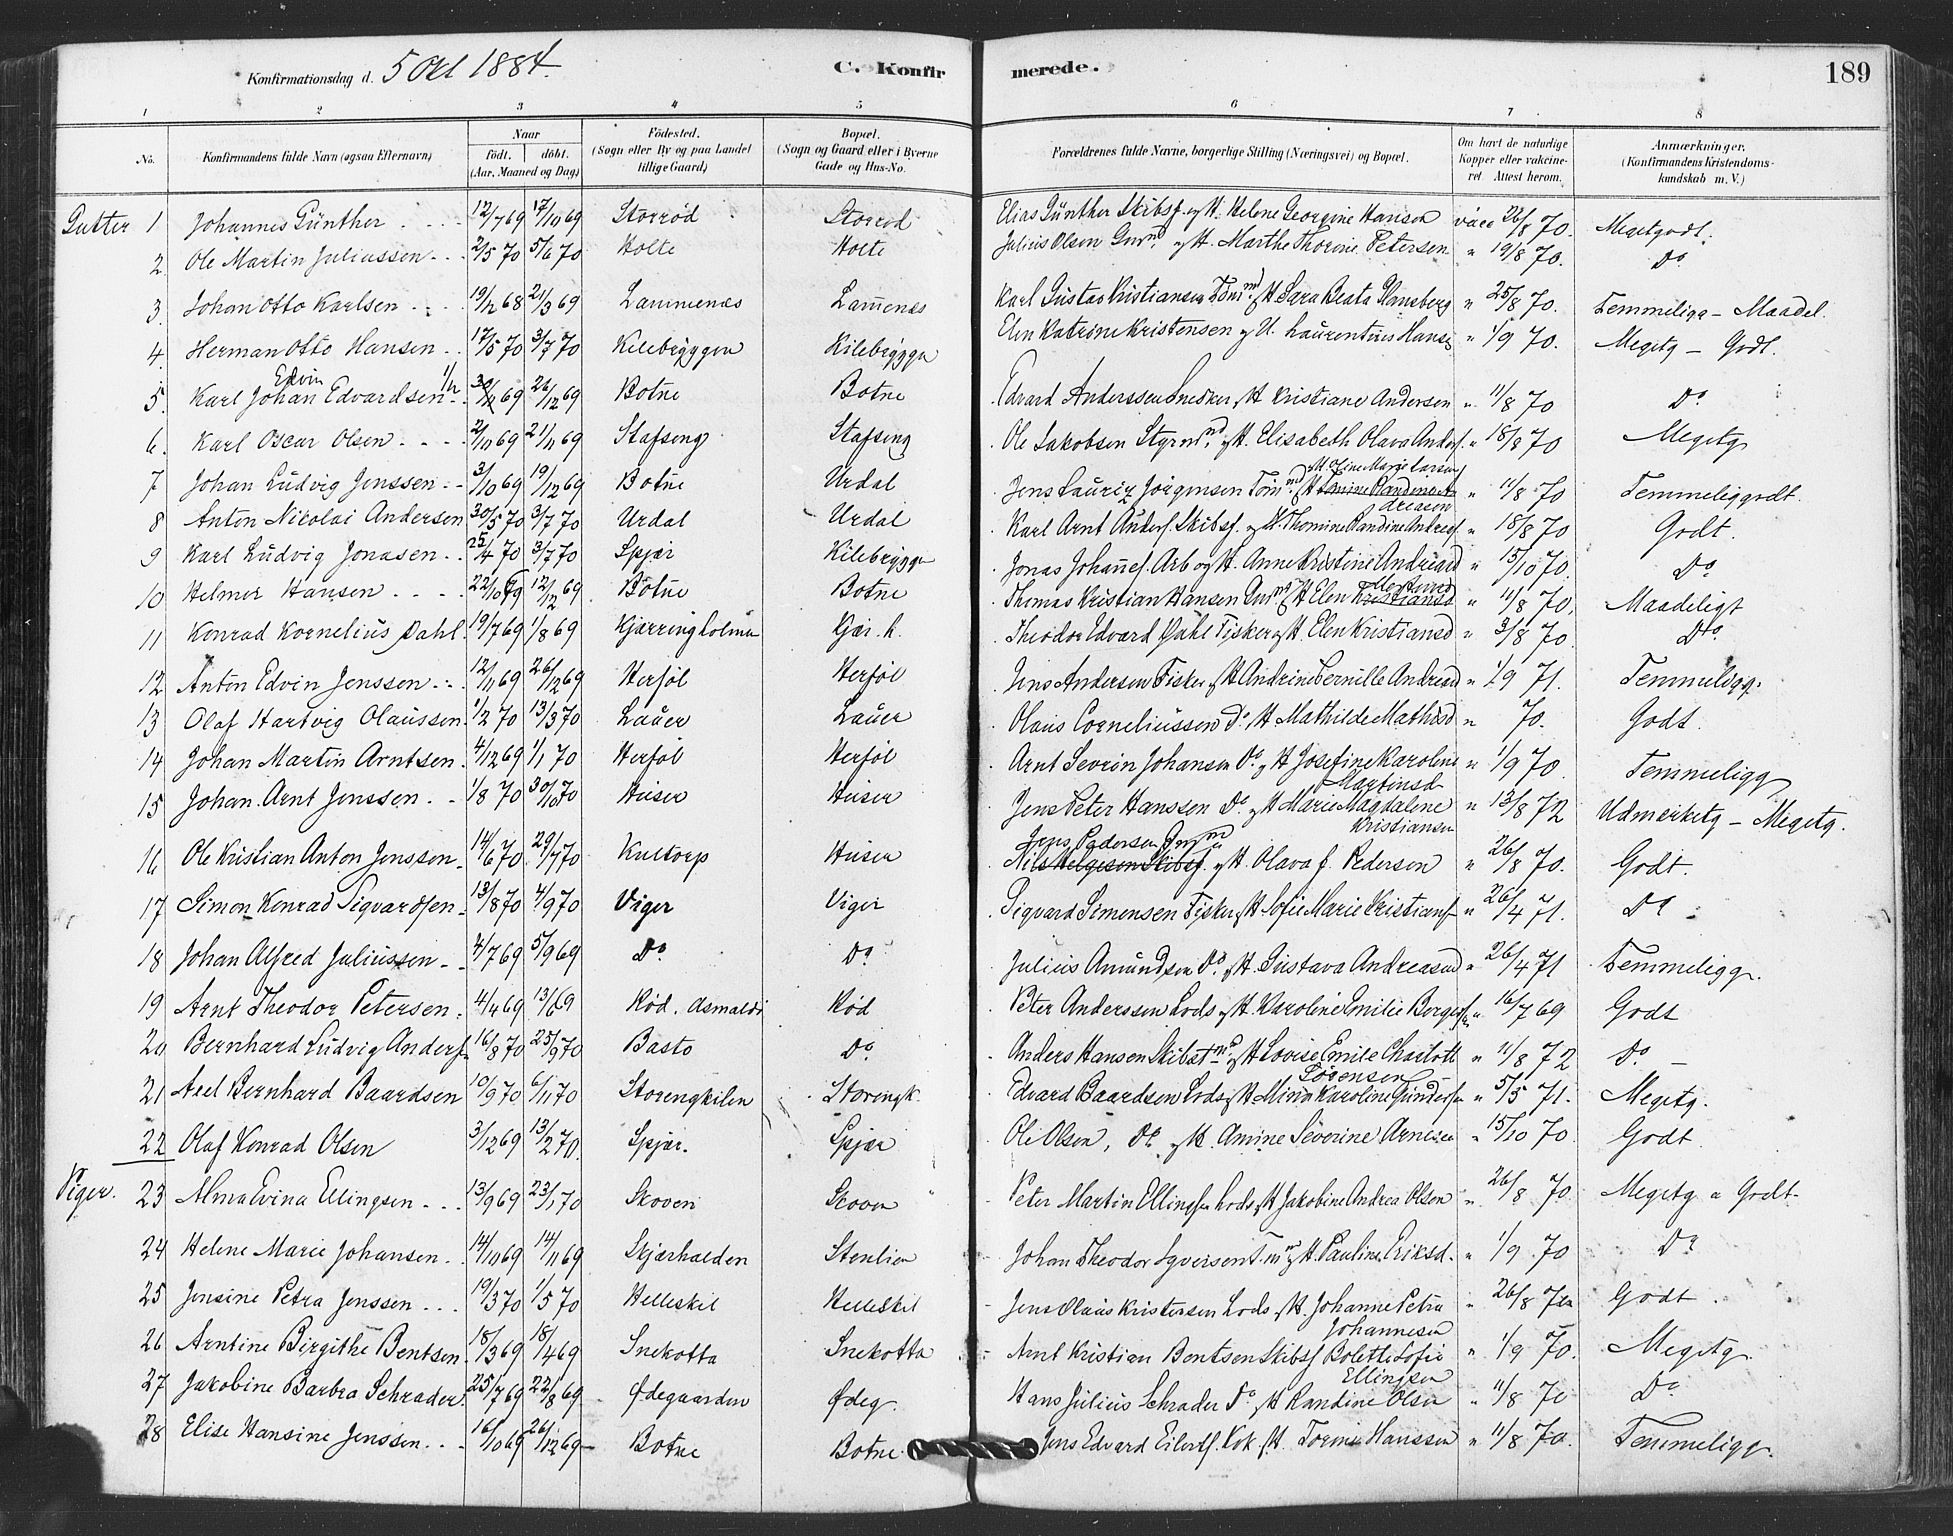 Konfirmationsdag d. 5 Okt 1884. C. Konfirmerede. 189
1 2 3 4 5 6 7 8
No. Konfirmandens fulde Navn (ogsaa Efternavn) Naar født. døbt. (Aar, Maaned og Dag) Fødested. (Sogn eller By og paa Landet tillige Gaard) Bopæl. (Sogn og Gaard eller i Byerne Gade og Hus-No. Forældrenes fulde Navne, borgerlige Stilling (Næringsvei) og Bopæl. Om havt de naturlige Kopper eller vakcineret. Attest herom. Anmærkninger. (Konfirmandens Kristendomskundskab m. V.)
Gutter 1 Johannes Günther 12/7 69 17/10 69 Storrød Storrød Elias Günther Skibsf. og H. Helene Georgine Hanson vacc 26/8 70. Megetgodt.
2. Ole Martin Juliussen 2/5 70 5/6 70 Holte Holte Julius Olsen Grmd. og H. Marthe Thorine Petersen " 19/8 70. Do
3. Johan Otto Karlsen 19/12 68 21/3 69 Lammenæs Lamenæs Karl Gustav Kristiansen Tømmd. H Sara Beata " 25/8 70. Temmeligg - Maadel.
4. Herman Otto Hansen 17/5 70 3/7 70 Kilebryggen Kilebrygga Elen Katrine Kristensen og U. Laurentius Hansen " 1/9 70. Megetg - Godt.
5. Karl Johan Edvin Edvardsen 1/12 69 26/12 69 Botne Botne Edvard Anderssen Snedker og H Kristiane Andersen " 11/8 70 Do
6. Karl Oscar Olsen 2/10 69 21/11 69 Stafseng Stafseng Ole Jakobsen Styrmd. og H. Elisabeth Olava Andersf. " 18/8 70 Megetg
7 Johan Ludvig Jenssen 3/10 69 19/12 69 Botne Urdal Jens Lauriz Jørgensen Tømmd. H M. Oline Marie Larsen " 11/8 70 Temmeliggodt.
8 Anton Nicolai Andersen 30/5 70 3/7 70 Urdal Urdal Karl Arnt Andersf. Skibsf. og H. Thomine Randine Andreasf " 18/8 70 Godt.
9 Karl Ludvig Jonasen 25/4 70 3/7 70 Spjær Kilebrygga Jonas Johannesf. Arb og H. Anne Kristine Andreasd " 15/10 70. Do
10 Helmer Hansen 22/10 69 12/12 69 Botne Botne Thomas Kristian Hansen Grmd. H Elen " 11/8 70. Maadeligt
11 Konrad Kornelius Dahl 19/7 69 1/8 69 Kjærringholmen Kjær. h. Theodor Edvard Dahl Fisker og H. Elen Kristiansd " 3/8 70 Do
12. Anton Edvin Jenssen 12/11 69 26/12 69 Herføl Herføl Jens Andersen Fisker og H Andrine Pernille Andreasd " 1/9 71. Temmeligg.
13 Olaf Hartvig Olaussen 1/2 70 13/3 70 Lauer Lauer Olaus Corneliussen Do. H Mathilde Mathisd " 70. Godt.
14 Johan Martin Arntsen 4/12 69 1/1 70 Herføl Herføl Arnt Severin Johansen Do. og H Josefine Karoline Martinsd " 1/9 70 Temmeligg
15 Johan Arnt Jenssen 1/8 70 30/10 70 Huser Huser Jens Peter Hanssen Do. og H Marie Magdalene Kristiansen " 13/8 72 Udmerketg - Megetg.
16 Ole Kristian Anton Jenssen 14/6 70 29/7 70 Kultorp Huser Jens Pedersen Grmd Nils Helgesen Skibsf. og H. Olava f. Pederson " 26/8 70. Godt.
17 Simon Konrad Sigvardsen 13/8 70 4/9 70 Viger Viger Sigvard Simensen Fisker H Sofie Marie Kristiansf " 26/4 71. Do
18 Johan Alfred Juliussen 4/7 69 5/9 69 Do Do Julius Amundsen Do. og H. Gustava Andreasd " 26/4 71 Temmeligg.
19 Arnt Theodor Petersen. 4/4 69 13/6 69 Rød. Asmaløi Rød Peter Anderssen Lods og H. Karoline Emilie Borgersen " 16/7 69 Godt
20 Bernhard Ludvig Andersf 16/8 70 25/9 70 Basto Do Anders Hansen Skibstmd. og H Lovise Emile Charlott Sørensen " 11/8 72 Do
21 Axel Bernhard Baardsen 10/9 70 6/11 70 Storengkilen Storengk. Edvard Baardsen Lods og H. Mina Karoline Gundersen " 5/5 71. Megetg.
22 Olaf Konrad Olsen 3/12 69 13/2 70. Spjær. Spjær Ole Olsen, Do. og H. Amine Severine Arnesen " 15/10 70. Godt
Piger. 23 Alma Evina Ellingsen 13/9 69 23/1 70 Skoven Skoven Peter Martin Ellingsen Lods og H Jakobine Andrea Olsen " 26/8 70. Megetg a Godt
24 Helene Marie Johansen 14/10 69 14/11 69 Skjærhalden Stenlien Johan Theodor Syversen H Pauline Eriksd. " 1/9 70 Do
25 Jensine Petra Jenssen 19/3 70 1/5 70 Helleskil Helleskil Jens Olaus Kristensen Lods. og H. Johanne Petra Johannesen " 26/8 70 Godt.
26 Arntine Birgithe Bentsen 18/3 69 18/4 69 Snekotta Snekotta Arnt Kristian Bentsen Skibsf Bolette Sofie Ellingsen " 1/9 70. Megetg.
27 Jakobine Barbra Schrader 25/7 69 22/8 69 Ødegaarden Ødeg. Hans Julius Schrader Do. H Randine Olsen " 11/8 70 Do
28 Elise Hansine Jenssen 16/10 69 26/12 69 Botne Botne Jens Edvard Eilertsf. Kok. H. Torine Hanssen " 11/8 70. Temmeligg.